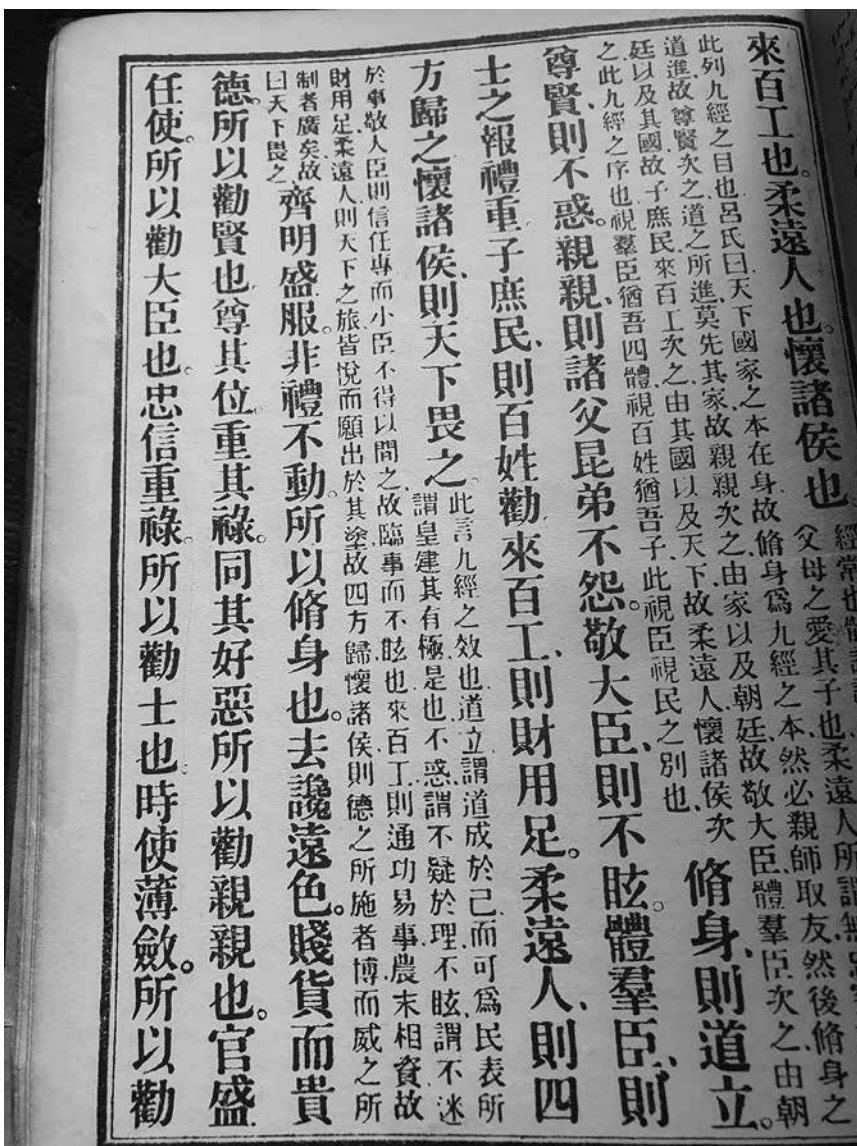 來百工也。柔遠人也。懷諸侯也
經常也體
父母之愛其子也、柔遠人所謂無
此列九經之目也呂氏曰天下國家之本在身故脩身爲九經之本然必親師取友然後脩身之
道進故尊賢次之道之所進莫先其家故親親次之由家以及朝廷故敬大臣體羣臣次之由朝
廷以及其國故子庶民來百工次之由其國以及天下故柔遠人懷諸侯次
之此九經之序也視羣臣猶吾四體視百姓猶吾子此視臣視民之別也
脩身、則道立。
尊賢、則不惑。親親、則諸父昆弟不怨。敬大臣、則不眩。體羣臣、則
士之報禮重。子庶民、則百姓勸。來百工、則財用足。柔遠人、則四
方歸之。懷諸侯、則天下畏之。
此言九經之效也道立謂道成於己而可爲民表所
謂皇建其有極是也不惑謂不疑於理不眩謂不迷
於事敬大臣則信任專而小臣不得以間之故臨事而不眩也來百工則通功易事農末相資故
財用足柔遠人則天下之旅皆悅而願出於其塗故四方歸懷諸侯則德之所施者博而威之所
制者廣矣故
曰天下畏之
齊明盛服。非禮不動。所以脩身也。去讒遠色。賤貨而貴
德。所以勸賢也。尊其位。重其祿。同其好惡。所以勸親親也。官盛
任使。所以勸大臣也。忠信重祿。所以勸士也。時使薄斂。所以勸